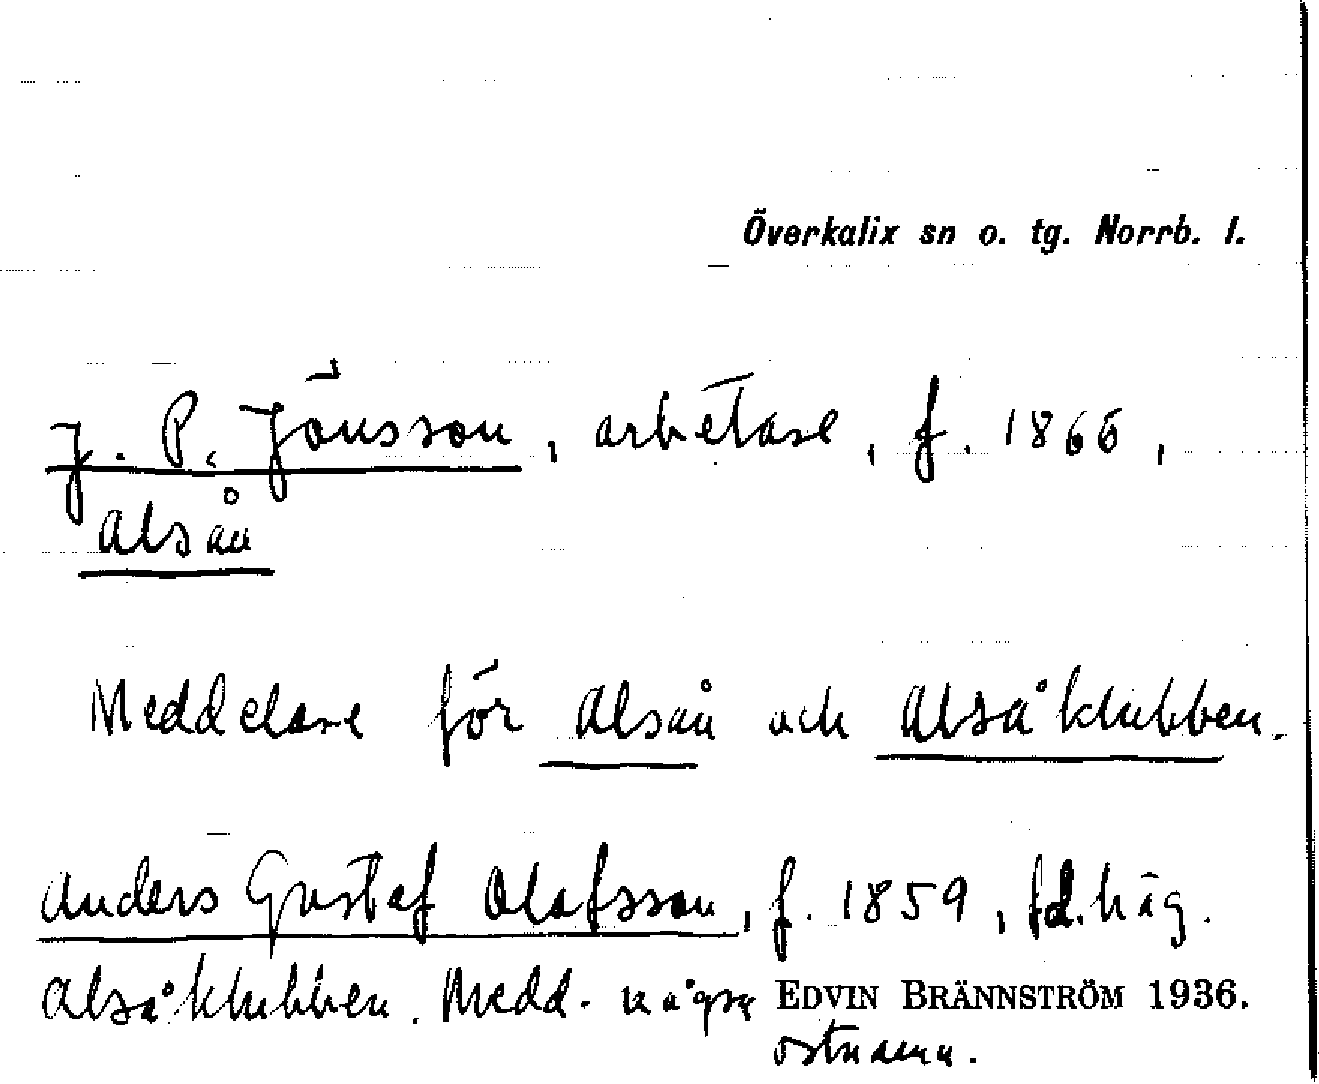 Överkalix sn o. tg. Norrb. l.
J. P. Jönsson, arbetare, f. 1866,
Alsån
Meddelare för Alsån och Alsåklubben.
Anders Gustaf Olofsson, f. 1859, f.d. häg.
Alsåklubben. Medd. några EDVIN BRÄNNSTRÖM 1936.
ortnamn.